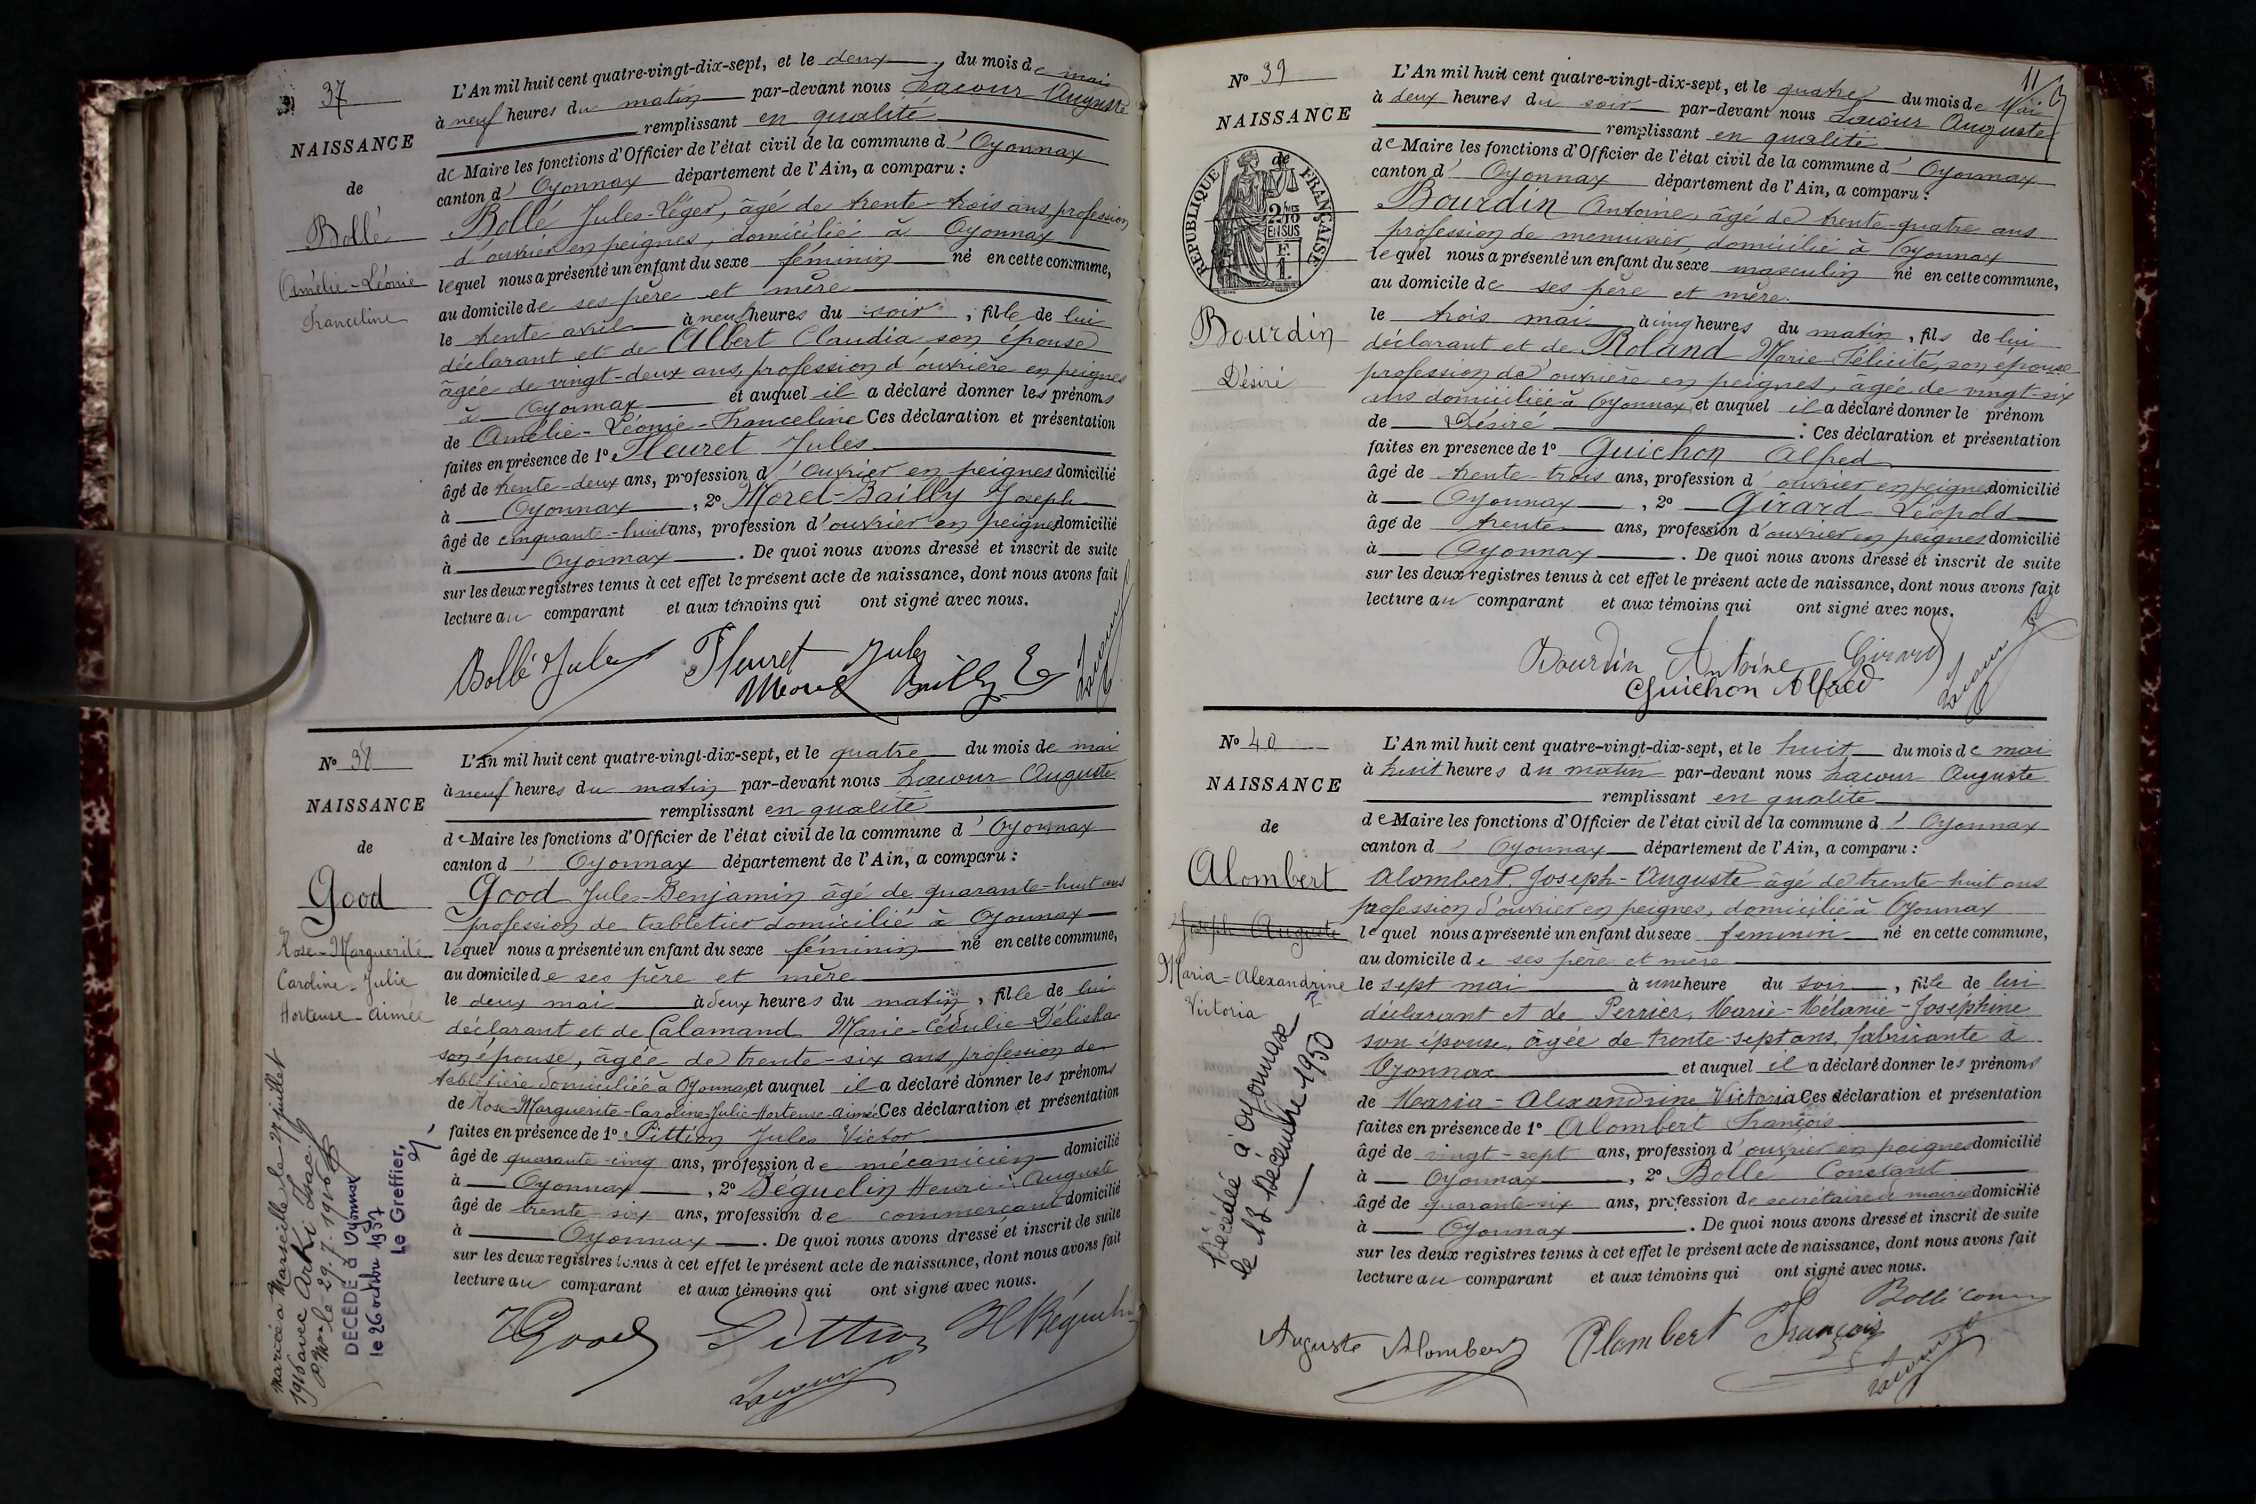 37
NAISSANCE
de
Bollé
Amélie-Léonie
Franceline
L'An mil huit cent quatre-vingt-dix-sept, et le deux du mois de mai
à neuf heures du matin par-devant nous Lacour Auguste
remplissant en qualité
de Maire les fonctions d'Officier de l'état civil de la commune d'Oyonnax
canton d'Oyonnax département de l'Ain, a comparu :
Bollé Jules-Léger, âgé de trente-trois ans, profession
d'ouvrier en peignes, domicilié à Oyonnax
lequel nous a présenté un enfant du sexe féminin né en cette commune,
au domicile de ses père et mère
le trente avril à neuf heures du soir, fille de lui
déclarant et de Albert Claudia son épouse
âgée de vingt-deux ans, profession d'ouvrière en peignes
à Oyonnax et auquel il a déclaré donner les prénoms
de Amélie-Léonie-Franceline Ces déclaration et présentation
faites en présence de 1º Fleuret Jules
âgé de trente-deux ans, profession d'ouvrier en peignes domicilié
à Oyonnax, 2º Morel-Bailly Joseph
âgé de cinquante-huit ans, profession d'ouvrier en peignes domicilié
à Oyonnax. De quoi nous avons dressé et inscrit de suite
sur les deux registres tenus à cet effet le présent acte de naissance, dont nous avons fait
lecture au comparant et aux témoins qui ont signé avec nous.
Bollé Jules Fleuret Jules
Morel Bailly Lacour
Nº 38
NAISSANCE
de
Good
Rose-Marguerite
Caroline-Julie
Hortense-Aimée
L'An mil huit cent quatre-vingt-dix-sept, et le quatre du mois de mai
à neuf heures du matin par-devant nous Lacour Auguste
remplissant en qualité
de Maire les fonctions d'Officier de l'état civil de la commune d'Oyonnax
canton d'Oyonnax département de l'Ain, a comparu :
Good Jules-Benjamin âgé de quarante-huit ans
profession de tabletier domicilié à Oyonnax
lequel nous a présenté un enfant du sexe féminin né en cette commune,
au domicile de ses père et mère
le deux mai à deux heures du matin, fille de lui
déclarant et de Calamand Marie-Céculie-Déliska
son épouse, âgée de trente-six ans, profession de
tabletière domiciliée à Oyonnax et auquel il a déclaré donner les prénoms
de Rose-Marguerite-Caroline-Julie-Hortense-Aimée Ces déclaration et présentation
faites en présence de 1º Pittion Jules Victor
âgé de quarante-cinq ans, profession de mécanicien domicilié
à Oyonnax, 2º Séguelin Henri-Auguste
âgé de trente-six ans, profession de commerçant domicilié
à Oyonnax. De quoi nous avons dressé et inscrit de suite
sur les deux registres tenus à cet effet le présent acte de naissance, dont nous avons fait
lecture au comparant et aux témoins qui ont signé avec nous.
J Good Pittion
Lacour
Mariée à Marseille le 27 juillet
1916 avec Arki Isaac
le 29.7.1916
DÉCÉDÉ à Oyonnax
le 26 octobre 1957
Le Greffier,
11
Nº 39
NAISSANCE
de
RÉPUBLIQUE FRANÇAISE
2/10
EN SUS
Bourdin
Désiré
L'An mil huit cent quatre-vingt-dix-sept, et le quatre du mois de Mai
à deux heures du soir par-devant nous Lacour Auguste
remplissant en qualité
de Maire les fonctions d'Officier de l'état civil de la commune d'Oyonnax
canton d'Oyonnax département de l'Ain, a comparu :
Bourdin Antoine, âgé de trente-quatre ans
profession de menuisier, domicilié à Oyonnax
lequel nous a présenté un enfant du sexe masculin né en cette commune,
au domicile de ses père et mère.
le trois mai à cinq heures du matin, fils de lui
déclarant et de Roland Marie-Félicité, son épouse
profession d'ouvrière en peignes, agée de vingt-six
ans domiciliée à Oyonnax, et auquel il a déclaré donner le prénom
de Désiré : Ces déclaration et présentation
faites en presence de 1º Guichon Alfred
âgé de trente-trois ans, profession d'ouvrier en peignes domicilié
à Oyonnax, 2º Girard Léopold
âgé de trente ans, profession d'ouvrier en peignes domicilié
à Oyonnax. De quoi nous avons dressé et inscrit de suite
sur les deux registres tenus à cet effet le présent acte de naissance, dont nous avons fait
lecture au comparant et aux témoins qui ont signé avec nous.
Bourdin Antoine Girard
Guichon Alfred Lacour
Nº 40
NAISSANCE
de
Alombert
Joseph Auguste
Maria-Alexandrine
Victoria
L'An mil huit cent quatre-vingt-dix-sept, et le huit du mois de mai
à huit heures du matin par-devant nous Lacour Auguste
remplissant en qualité
de Maire les fonctions d'Officier de l'état civil de la commune d'Oyonnax
canton d'Oyonnax département de l'Ain, a comparu :
Alombert, Joseph-Auguste âgé de trente-huit ans
profession d'ouvrier en peignes, domicilié à Oyonnax
lequel nous a présenté un enfant du sexe feminin né en cette commune,
au domicile de ses père et mère
le sept mai à une heure du soir, fille de lui
déclarant et de Perrier, Marie-Mélanie-Joséphine
son épouse, âgée de trente-sept ans, fabricante à
Oyonnax et auquel il a déclaré donner les prénoms
de Maria-Alexandrine Victoria Ces déclaration et présentation
faites en présence de 1º Alombert François
âgé de vingt-sept ans, profession d'ouvrier en peignes domicilié
à Oyonnax, 2º Bollé Constant
âgé de quarante-six ans, profession de secrétaire de mairie domicilié
à Oyonnax. De quoi nous avons dressé et inscrit de suite
sur les deux registres tenus à cet effet le présent acte de naissance, dont nous avons fait
lecture au comparant et aux témoins qui ont signé avec nous.
Bollé
Auguste Alombert Alombert François
Lacour
Décédée à Oyonnax
le 13 Décembre 1950